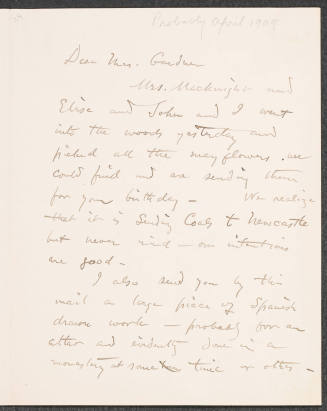 Probably April 1909
Dear Mrs. Gardner
Mrs. Mecknight and
Elise and John and I went
into the woods yesterday and
picked all the mayflowers we
could find and are sending them
for your birthday - We realize
that it is Sending Coals to Newcastle
but never mind - our intentions
are good -
I also send you by this
mail a large piece of Spanish
drawn work - probably for an
altar and evidently done in a
monastery at some time or other -